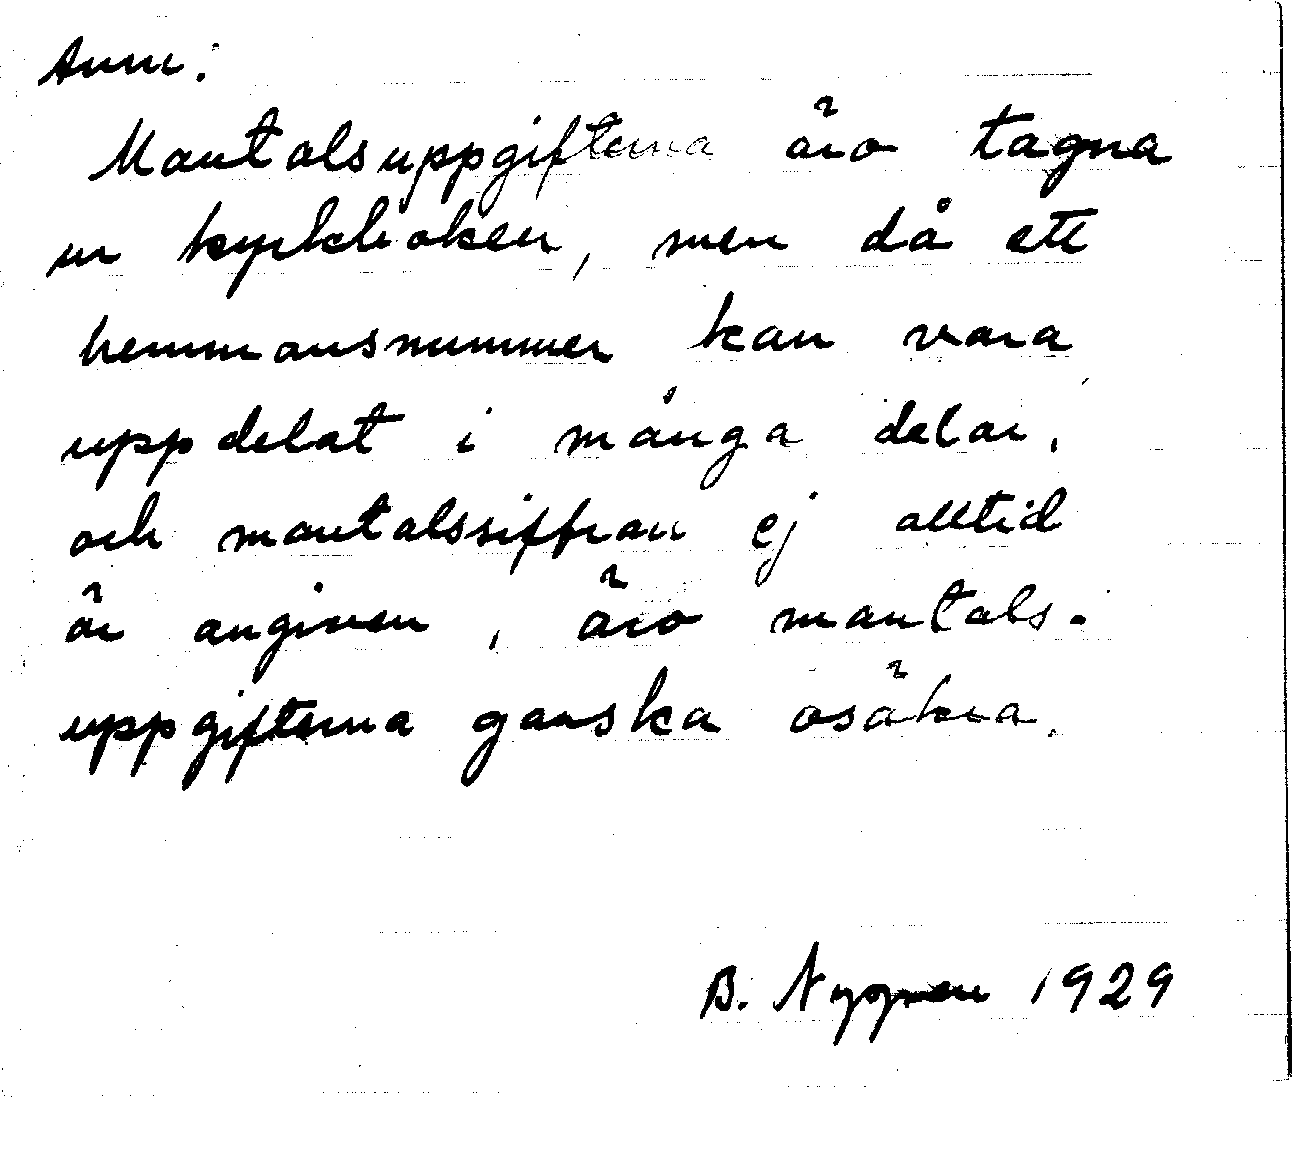 Anm:
Mantalsuppgifterna äro tagna
ur kyrkböken, men då ett
hemmansnummer kan vara
uppdelat i många delar,
och mantalssiffran ej alltid
är angiven, äro mantals-
uppgifterna ganska osäkra.
B. Nygren 1929